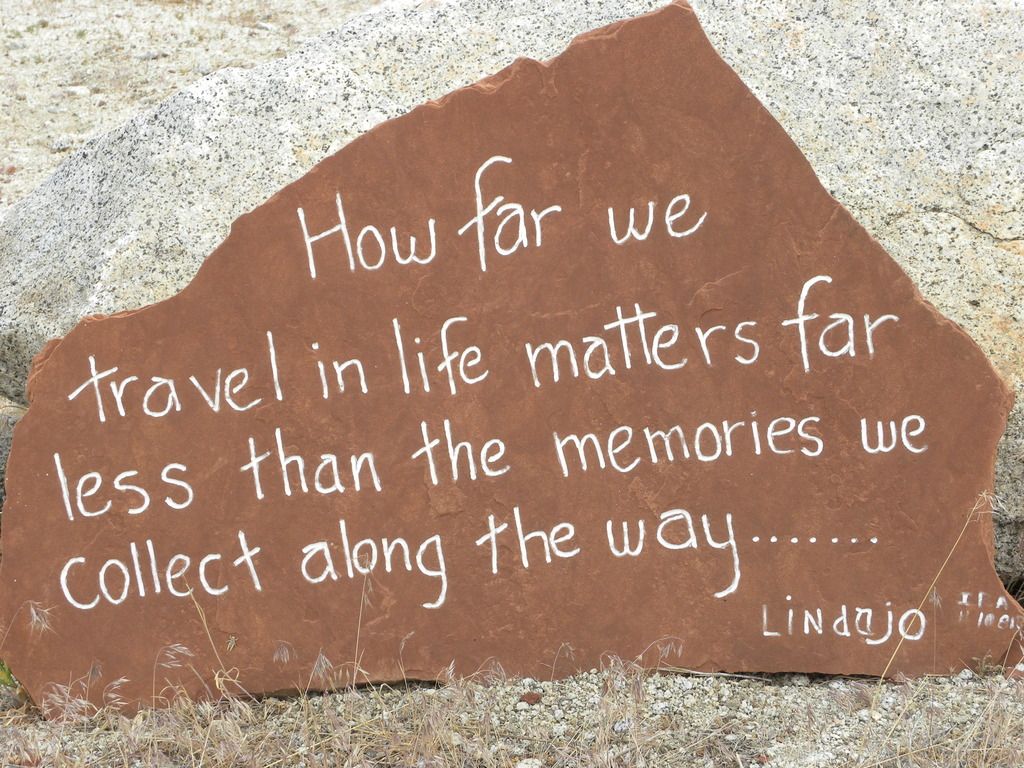 How far we
travel in life matters far
less than the memories we
collect along the way.......
Lindajo